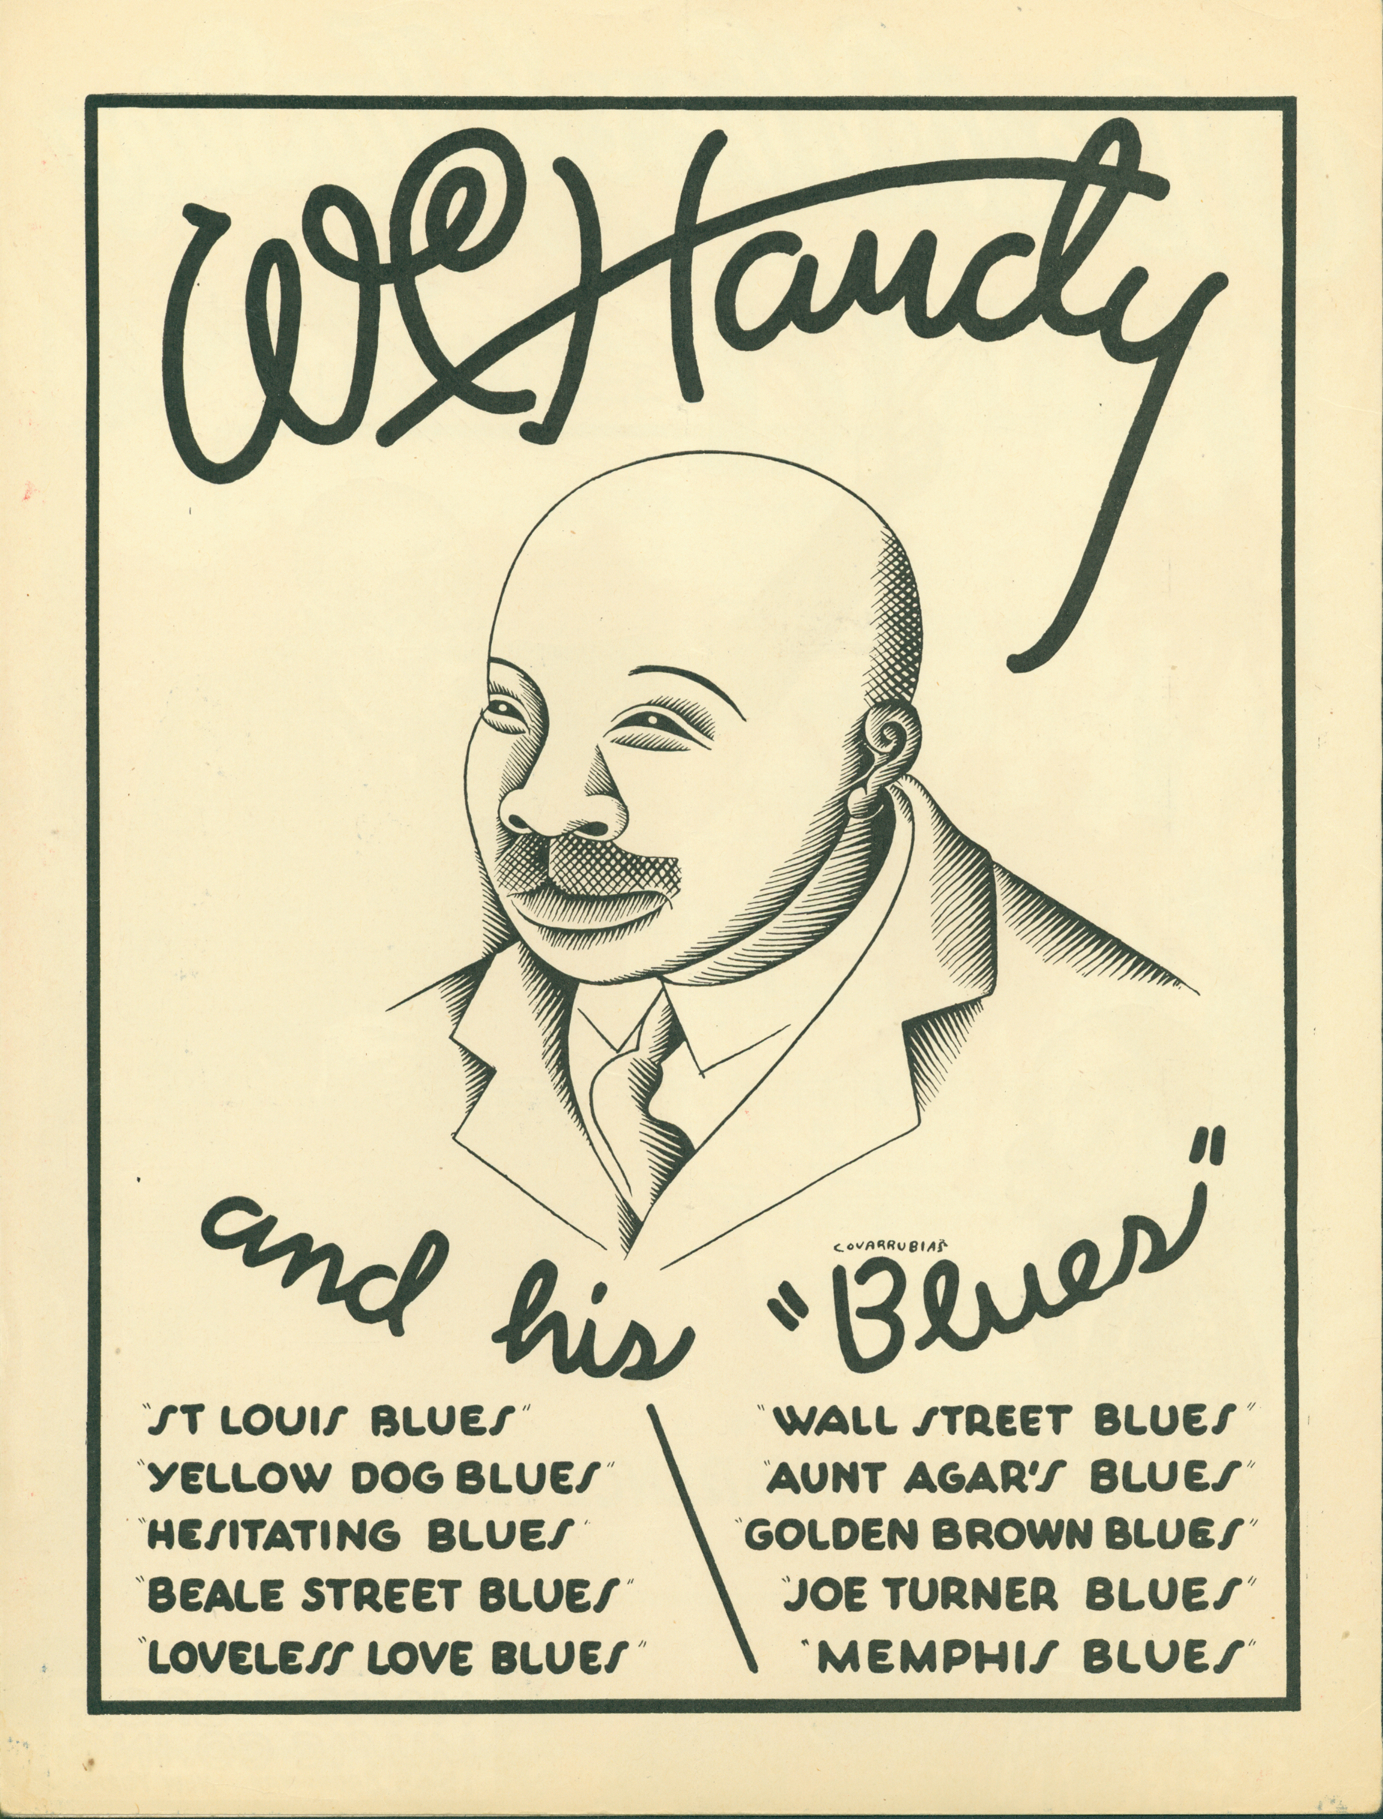 WC Handy
COVARRUBIAS
and his "Blues"
"ST LOUIS BLUES"
"YELLOW DOG BLUES"
"HESITATING BLUES"
"BEALE STREET BLUES"
"LOVELESS LOVE BLUES"
"WALL STREET BLUES"
"AUNT AGAR'S BLUES"
"GOLDEN BROWN BLUES"
"JOE TURNER BLUES"
"MEMPHIS BLUES"